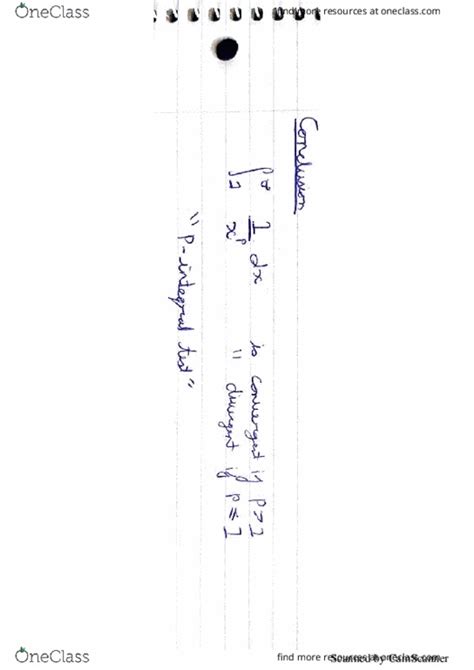 OneClass
find more resources at oneclass.com
Conclusion
∫₁^∞ 1/x^p dx is convergent if p > 1
" divergent if p ≤ 1
"P-integral test"
OneClass
find more resources at oneclass.com
Scanned by CamScanner